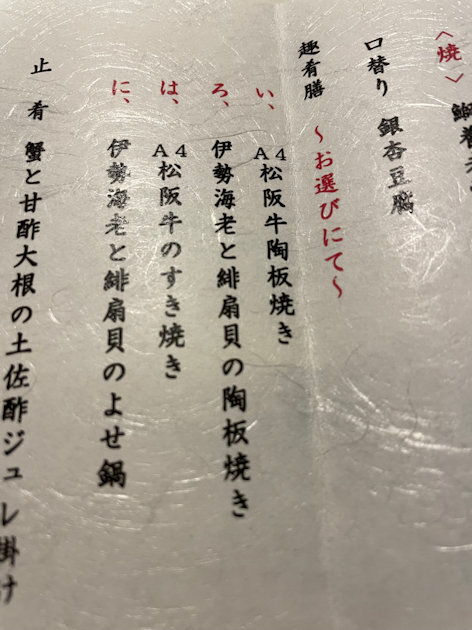 〈焼〉
口替り 銀杏豆腐
趣肴膳 ～お選びにて～
い、A4松阪牛陶板焼き
ろ、伊勢海老と緋扇貝の陶板焼き
は、A4松阪牛のすき焼き
に、伊勢海老と緋扇貝のよせ鍋
止 肴 蟹と甘酢大根の土佐酢ジュレ掛け